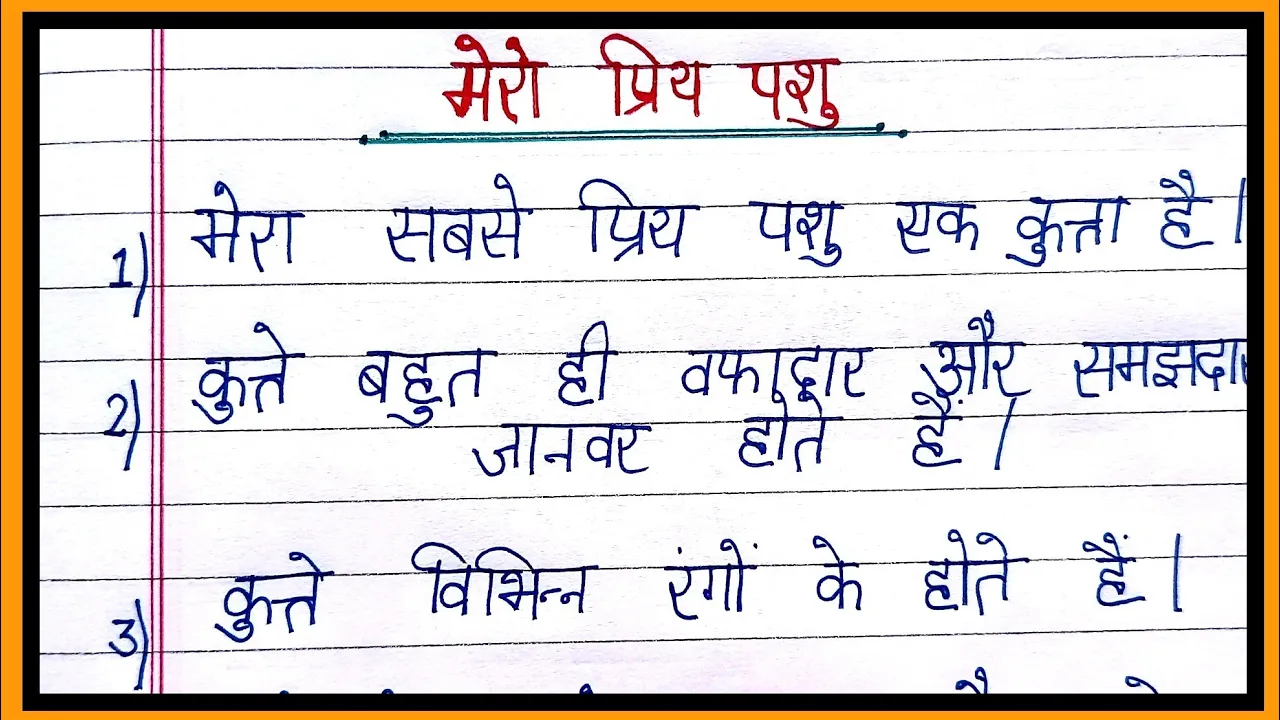 मेरो प्रिय पशु
1) मेरा सबसे प्रिय पशु एक कुत्ता है।
2) कुत्ते बहुत ही वफादार और समझदार
जानवर होते हैं।
3) कुत्ते विभिन्न रंगों के होते हैं।